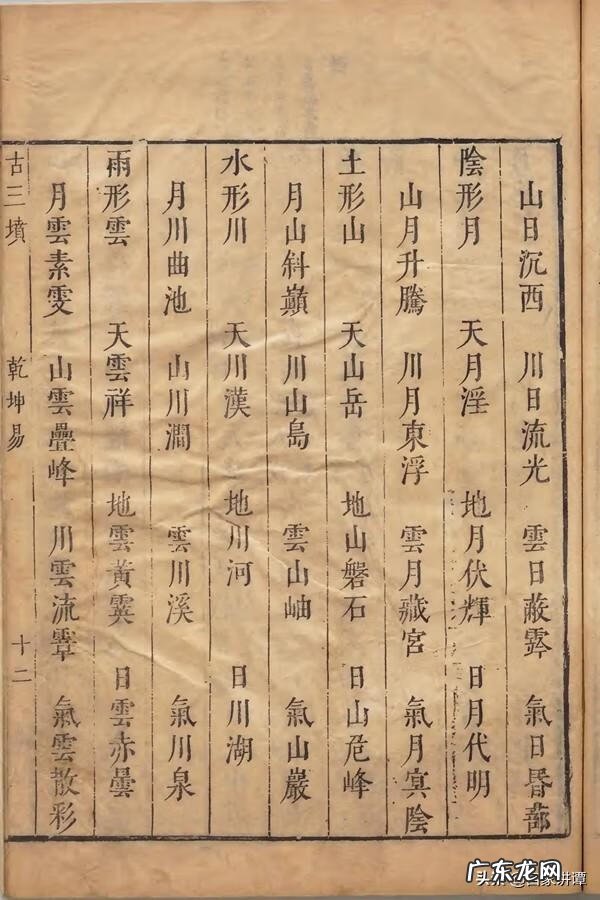 山日沉西 川日流光 雲日蔽霽 氣日昏蔀
陰形月 天月淫 地月伏輝 日月代明
山月升騰 川月東浮 雲月藏宮 氣月冥陰
土形山 天山岳 地山磐石 日山危峰
月山斜巔 川山島 雲山岫 氣山巖
水形川 天川漢 地川河 日川湖
月川曲池 山川澗 雲川溪 氣川泉
雨形雲 天雲祥 地雲黃霙 日雲赤曇
月雲素雯 山雲疊峰 川雲流霏 氣雲散彩
古三墳 乾坤易 十二
广东龙网